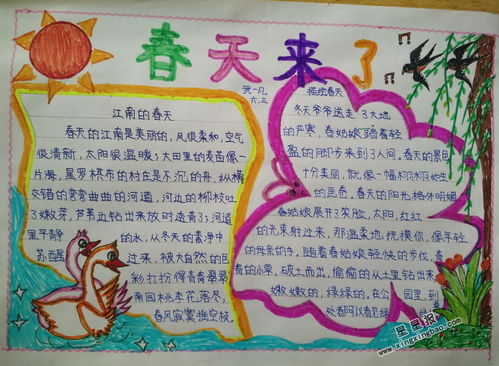 春天来了
江南的春天
春天的江南是美丽的，风很柔和，空气
很清新，太阳很温暖，大田里的麦苗像一
片海，星罗棋布的村庄是不沉的舟，纵横
交错的弯弯曲曲的河道，河边的柳枝吐
了嫩芽，芦苇边钻出来放时透青了；河道
里平静的水，从冬天的素净中
苏醒过来，被大自然的
彩打扮得青青翠翠
南园桃李花落尽，
春风寂寞摇空枝。
六.三
描绘春天
冬天爷爷送走了大地
的严寒，春姑娘踏着轻
盈的脚步来到了人间。春天的景色
十分美丽，就像一幅栩栩如生
的画卷，春天的阳光格外明媚
春姑娘展开了笑脸，太阳，红红
的光束射过来，那温柔地，抚摸你，像年轻
的母亲的手，随着春姑娘轻快的步伐，青
青的小草，破土而出，偷偷的从土里钻出来
嫩嫩的，绿绿的，在公园里，到
处者阿以看见绿
星星报
www.xingxingbao.com